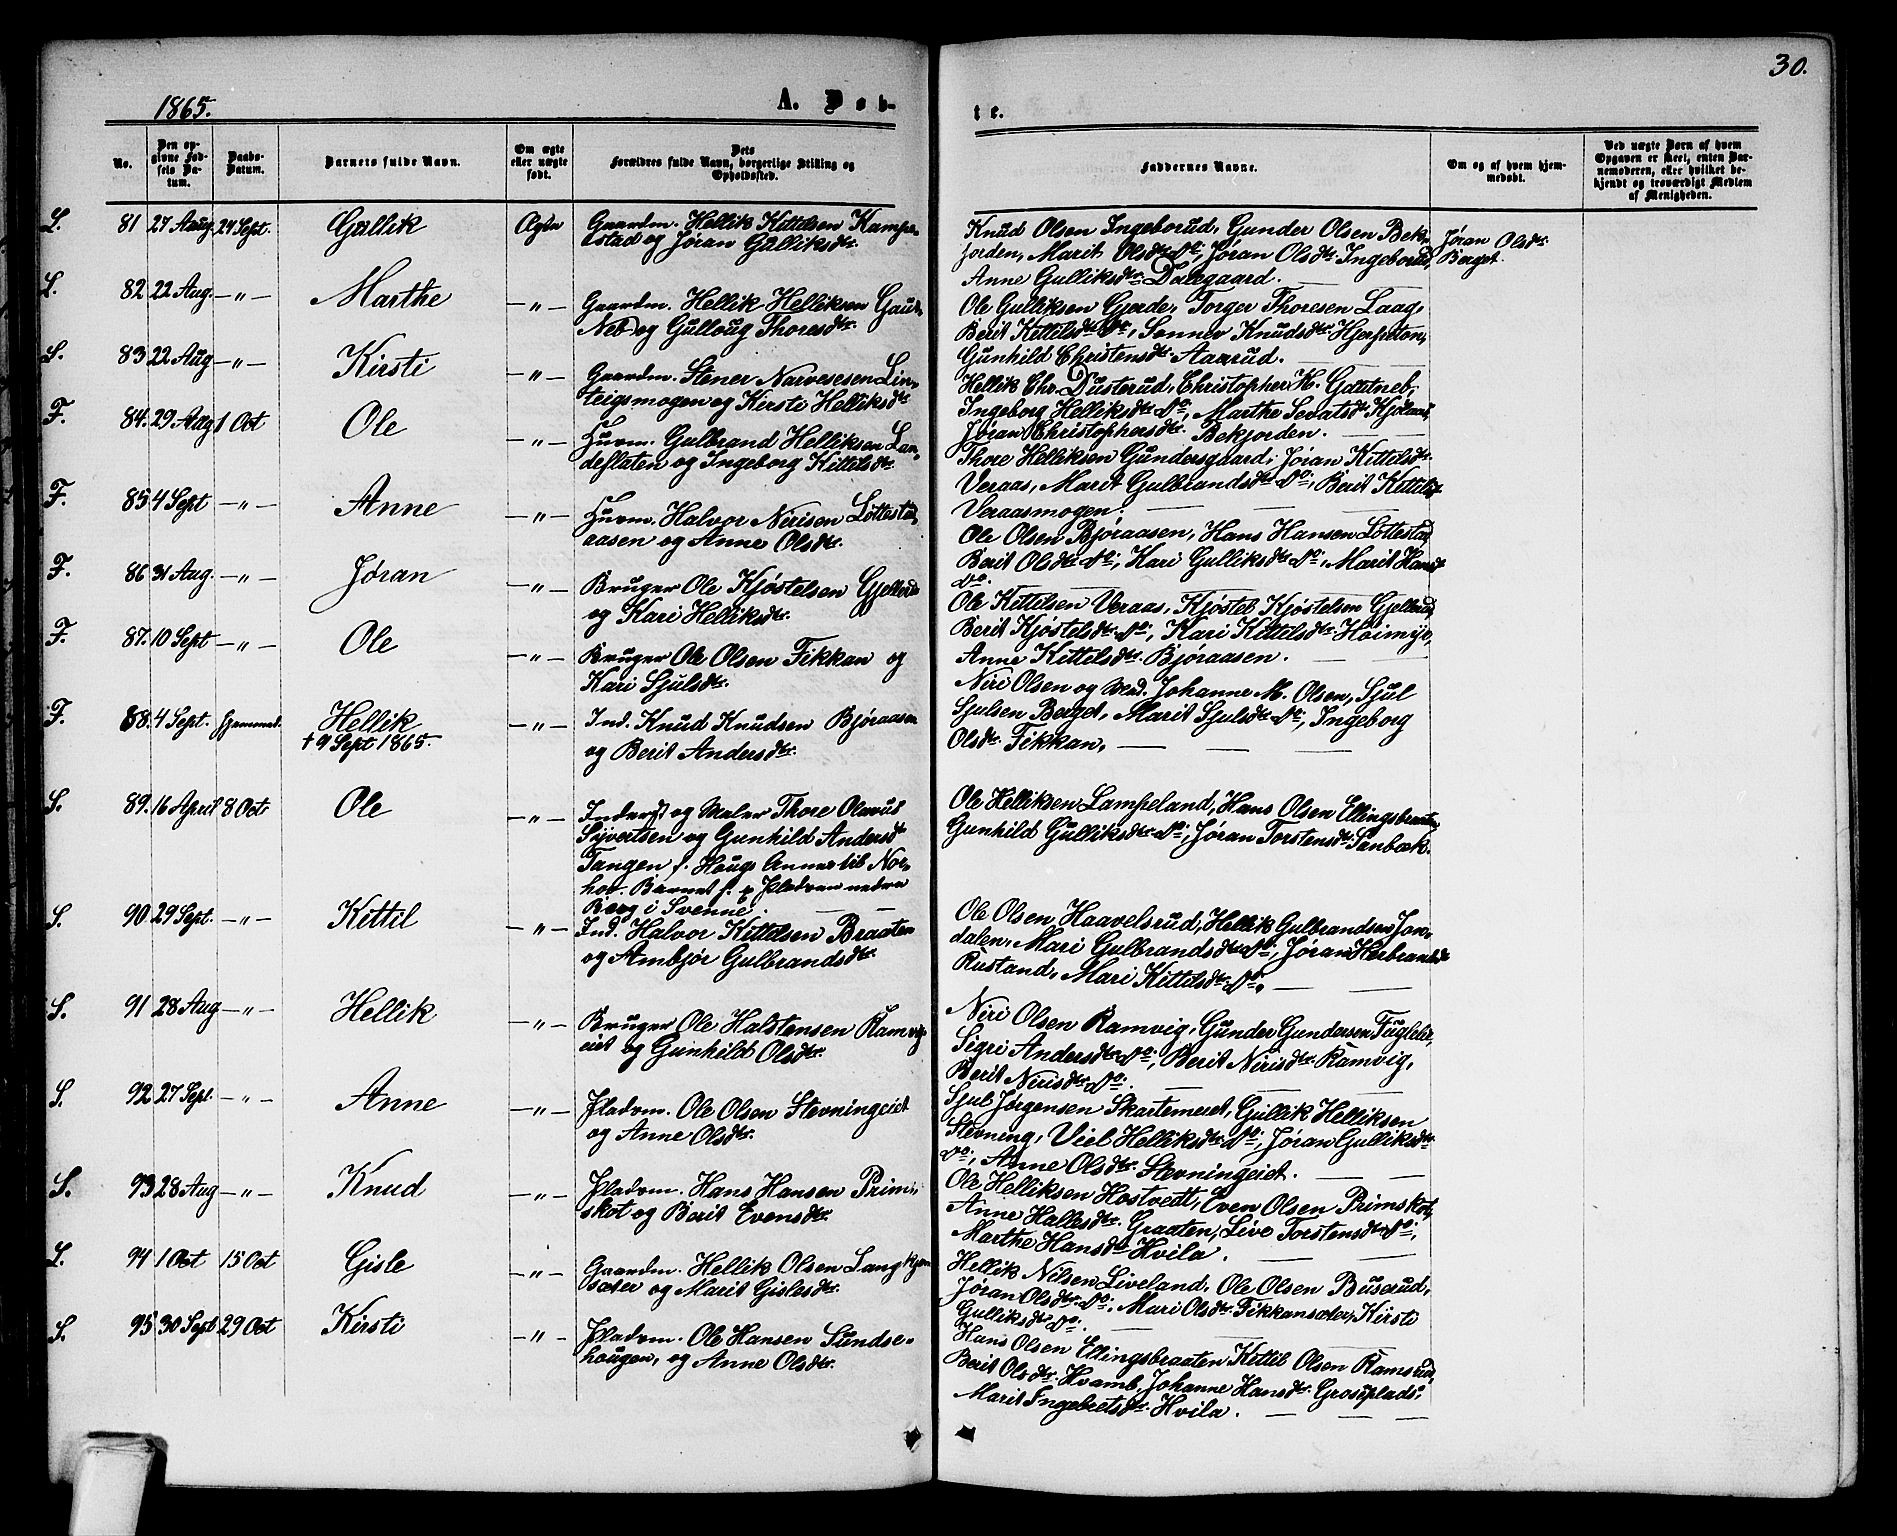 30.
1865.
A. Døb-
te.
No.
Den op-
givne Fød-
sels Da-
tum.
Daabs-
Datum.
Barnets fulde Navn.
Om ægte
eller uægte
født.
Dets
Forældres fulde Navn, borgerlige Stilling og
Opholdssted.
Faddernes Navne.
Om og af hvem hjem-
medøbt.
Ved uægte Børn af hvem
Opgaven er skeet, enten Bar-
nemoderen, eller hvilket be-
kjendt og troværdigt Medlem
af Menigheden.
L. 81 27 Aug. 24 Sept. Gullik Ægte Gaardm. Hellik Kittelsen Kampe-
stad og Jøran Gulliksdtr.
Knud Olsen Ingeborud, Gunder Olsen Bek-
jorden, Marit Olsdtr. Do:, Jøran Olsdtr. Ingeborud,
Anne Gulliksdtr. Dalegaard.
Jøran Olsdtr.
Berget.
L. 82 22 Aug. -"- Marthe -"- Gaardm. Hellik Helliksen Gaut-
Neb og Gulloug Thoresdtr.
Ole Gulliksen Gjerde, Torger Thoresen Laag,
Berit Kittelsdtr. Do:, Sønnev Knudsdtr. Hjerpeton,
Gunhild Christensdtr. Aasrud.
S. 83 22 Aug -"- Kirsti -"- Gaardm. Stener Narvesesen Lin-
teigsmogen og Kirsti Helliksdtr.
Hellik Chr. Dusterud, Christopher H. Gautneb,
Ingeborg Helliksdtr. Do:, Marthe Sevatsdtr.
Jøran Christophersdtr. Bekjorden.
F. 84. 29 Aug 1 Oct Ole -"- Huvm. Gulbrand Helliksen Lan-
deflaten og Ingeborg Kittelsdtr.
Thore Helliksen Gundersgaard, Jøran Kittelsdtr.
Veraas, Marit Gulbrandsdtr. Do:, Berit Kittelsdtr.
Veraasmogen.
F. 85 4 Sept -"- Anne -"- Huvm. Halvor Nirisen Løttestad-
aasen og Anne Olsdtr.
Ole Olsen Bjøraasen, Hans Hansen Løttestad,
Berit Olsdtr. Do:, Kari Gulliksdtr. Do:, Marit Hansdtr.
Do:
F. 86 31 Aug. -"- Jøran -"- Bruger Ole Kjøstelsen Gjellerud
og Kari Helliksdtr.
Ole Kittelsen Veraas, Kjøstel Kjøstelsen Gjellerud,
Berit Kjøstelsdtr. Do:, Kari Kittelsdtr. Høimyr,
Anne Kittelsdtr. Bjøraasen.
F. 87. 10 Sept -"- Ole -"- Bruger Ole Olsen Fikkan og
Kari Sjulsdtr.
Niri Olsen og Mad. Johanne M. Olsen, Sjul
Sjulsen Berget, Marit Sjulsdtr. Do:, Ingeborg
Olsdtr. Fikkan.
F. 88. 4 Sept. hjemmed. Hellik
† 9 Sept 1865. -"- Ind. Knud Knudsen Bjøraasen
og Berit Andersdtr.
S. 89. 16 April 8 Oct Ole -"- Inderst og Maler Thore Olavus
Syvertsen og Gunhild Andersdtr.
Tangen f. Hougs Annex til Nor-
hov. Barnet f. p. Pladsen nedre
Berg i Svenne.
Ole Helliksen Lampeland, Hans Olsen Ellingsbraaten,
Gunhild Gulliksdtr. Do:, Jøran Torstensdtr. Sanbæk.
S. 90. 29 Sept. -"- Kittil -"- Ind. Halvor Kittelsen Braaten
og Ambjør Gulbrandsdtr.
Ole Olsen Haavelsrud, Hellik Gulbrandsen Jon-
dalen, Mari Gulbrandsdtr. Do:, Jøran Herbrandsdtr.
Rustand, Mari Kittelsdtr. Do:.
S. 91 28 Aug -"- Hellik -"- Bruger Ole Halstensen Ramvig-
eiet og Gunhild Olsdtr.
Niri Olsen Ramvig, Gunder Gundersen Fuglelie,
Sigri Andersdtr. Do:, Berit Nirisdtr. Ramvig,
Berit Nirisdtr. Do:
S. 92 27 Sept. -"- Anne -"- Pladsm. Ole Olsen Stevningeiet
og Anne Olsdtr.
Sjul Jørgensen Skartemeret, Gullik Helliksen
Stevning, Viel Helliksdtr. Do:, Jøran Gulliksdtr.
Do:, Anne Olsdtr. Stevningeiet.
S. 93 28 Aug -"- Knud -"- Pladsm. Hans Hansen Prim-
skot og Berit Evensdtr.
Ole Helliksen Hostvedt, Even Olsen Primskot,
Anne Hallesdtr. Graaten, Live Torstensdtr. Do:,
Marthe Hansdtr. Hvila.
L. 94 1 Oct 15 Oct Gisle -"- Gaardm. Hellik Olsen Langkjen-
sæter og Marit Gislesdtr.
Hellik Nilsen Liveland, Ole Olsen Buserud,
Jøran Olsdtr. Do:, Mari Olsdtr. Fikkansæter, Kirsti
Gulliksdtr. Do:
S. 95 30 Sept 29 Oct Kirsti -"- Pladsm. Ole Hansen Sundse-
hougen, og Anne Olsdtr.
Hans Olsen Ellingsbraaten, Kittil Olsen Ramsrud,
Berit Olsdtr. Hvamb, Johanne Hansdtr. Grosetplads,
Marit Ingebretsdtr. Hvila.